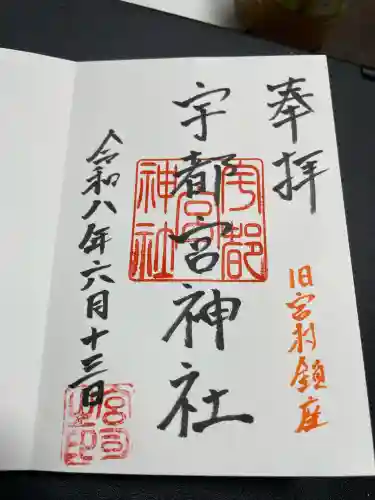 奉拝
旧宮村鎮座
宇都宮神社
宇都宮神社
令和八年六月十三日
宮司之印